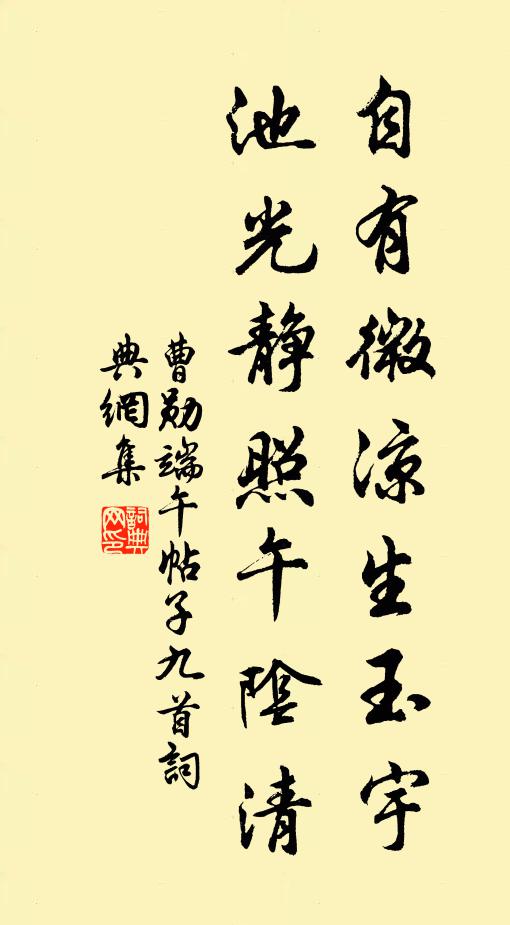 自有微涼生玉宇
池光靜照午陰清
曹勛端午帖子九首詞
典網集
詞典網印